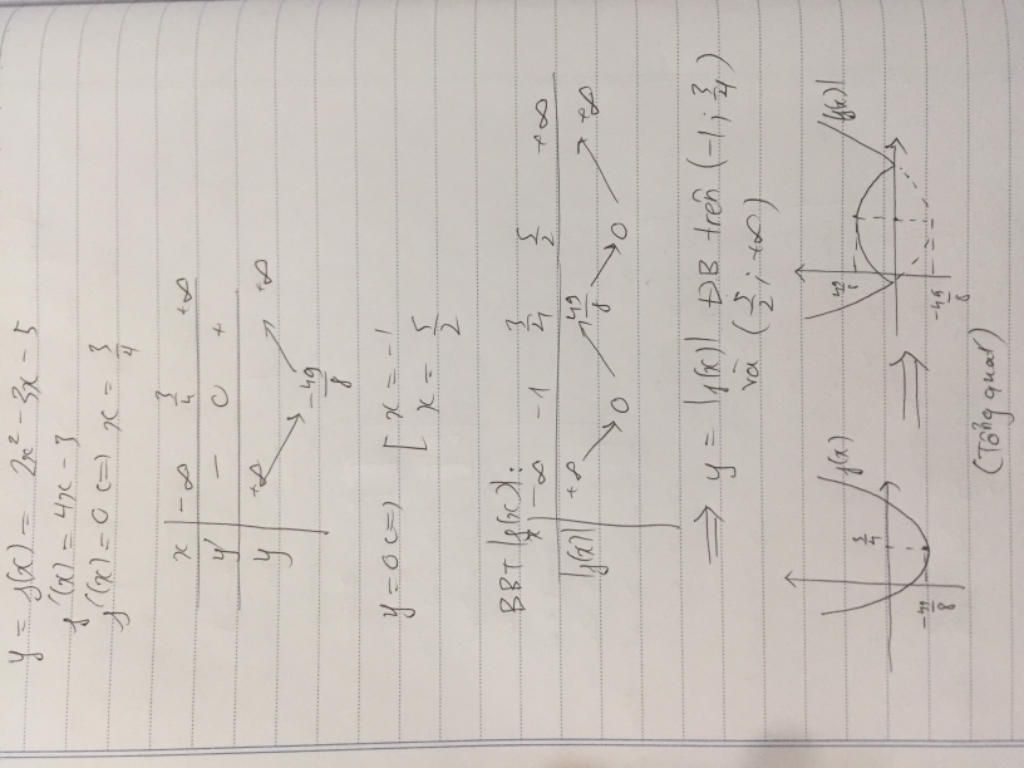 y = f(x) = 2x² - 3x - 5
f'(x) = 4x - 3
f'(x) = 0 (=) x = 3/4
x | -∞ 3/4 +∞
y' | - 0 +
y | +∞ ↘ -49/8 ↗ +∞
y = 0 (=) [ x = -1
[ x = 5/2
BBT |f(x)|:
x | -∞ -1 3/4 5/2 +∞
|f(x)| | +∞ ↘ 0 ↗ 49/8 ↘ 0 ↗ +∞
⇒ y = |f(x)| ĐB trên (-1; 3/4)
và (5/2; +∞)
f(x)
3/4
-49/8
⇒
|f(x)|
49/8
-49/8
(Tổng quát)